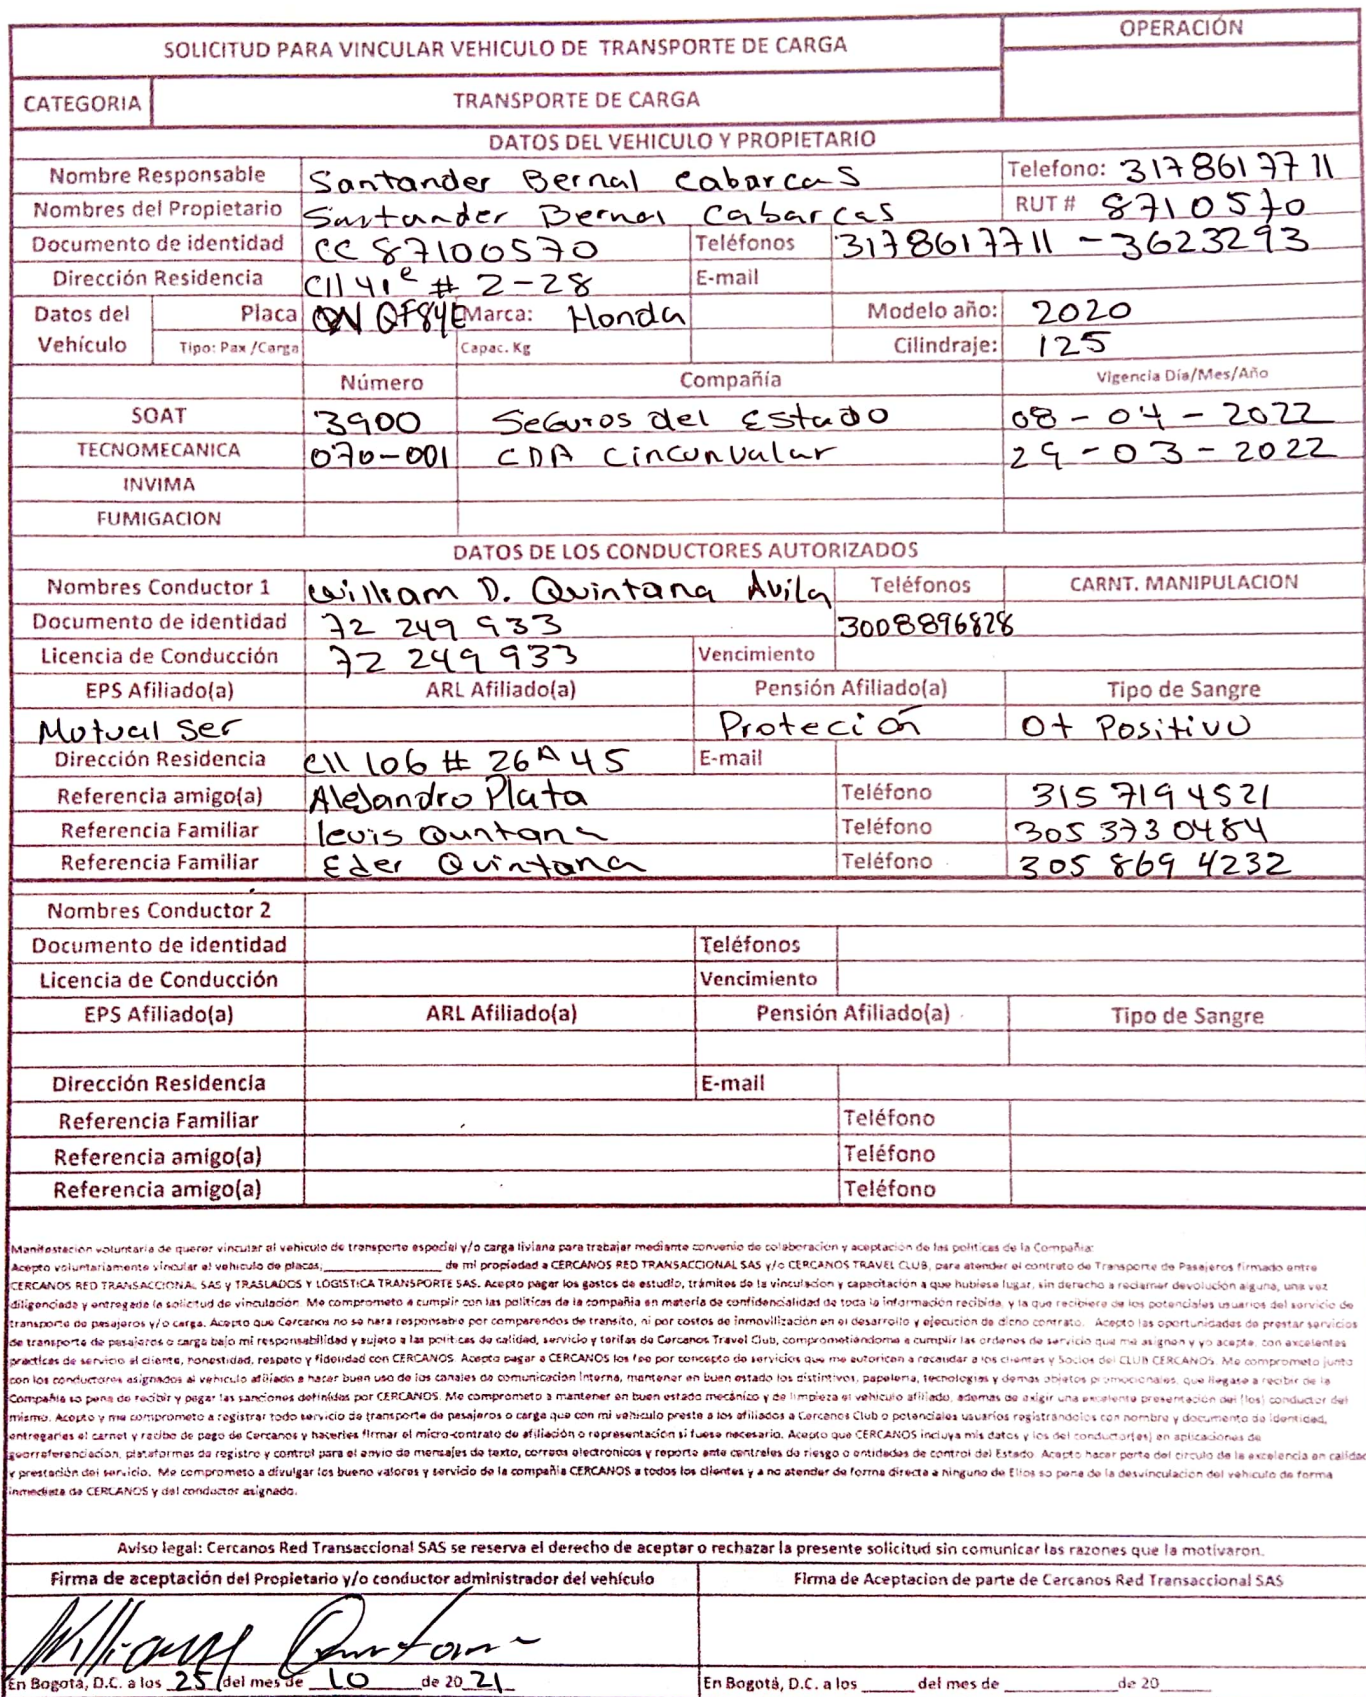 SOLICITUD PARA VINCULAR VEHICULO DE TRANSPORTE DE CARGA
OPERACIÓN
CATEGORIA TRANSPORTE DE CARGA
DATOS DEL VEHICULO Y PROPIETARIO
Nombre Responsable Santander Bernal cabarcas Telefono: 3178617711
Nombres del Propietario Santander Bernal Cabarcas RUT # 8710570
Documento de identidad CC 87100570 Teléfonos 3178617711 - 3623293
Dirección Residencia Cll 41e # 2-28 E-mail
Datos del Vehículo
Placa QF84E Marca: Honda Modelo año: 2020
Tipo: Pax /Carga Capac. Kg Cilindraje: 125
Número Compañía Vigencia Día/Mes/Año
SOAT 3900 Seguros del Estado 08 - 04 - 2022
TECNOMECANICA 070-001 CDA Cincunvalar 29 - 03 - 2022
INVIMA
FUMIGACION
DATOS DE LOS CONDUCTORES AUTORIZADOS
Nombres Conductor 1 William D. Quintana Avila Teléfonos CARNT. MANIPULACION
Documento de identidad 72 249 933 3008896828
Licencia de Conducción 72 249 933 Vencimiento
EPS Afiliado(a) ARL Afiliado(a) Pensión Afiliado(a) Tipo de Sangre
Mutual Ser Proteción O+ Positivo
Dirección Residencia Cll 106 # 26A 45 E-mail
Referencia amigo(a) Alejandro Plata Teléfono 315 7194521
Referencia Familiar levis Quntana Teléfono 305 3730484
Referencia Familiar Eder Quintana Teléfono 305 869 4232
Nombres Conductor 2
Documento de identidad Teléfonos
Licencia de Conducción Vencimiento
EPS Afiliado(a) ARL Afiliado(a) Pensión Afiliado(a) Tipo de Sangre
Dirección Residencia E-mail
Referencia Familiar Teléfono
Referencia amigo(a) Teléfono
Referencia amigo(a) Teléfono
Manifestación voluntaria de querer vincular al vehiculo de transporte especial y/o carga liviana para trabajar mediante convenio de colaboracion y aceptación de las politicas de la Compañia:
Acepto voluntariamente vincular el vehiculo de placas,__________ de mi propiedad a CERCANOS RED TRANSACCIONAL SAS y/o CERCANOS TRAVEL CLUB, para atender el contrato de Transporte de Pasajeros firmado entre
CERCANOS RED TRANSACCIONAL SAS y TRASLADOS Y LOGISTICA TRANSPORTE SAS. Acepto pagar los gastos de estudio, trámites de la vinculación y capacitación a que hubiese lugar, sin derecho a reclamar devolución alguna, una vez
diligenciada y entregada la solicitud de vinculación. Me comprometo a cumplir con las politicas de la compañia en materia de confidencialidad de toda la información recibida, y la que recibiere de los potenciales usuarios del servicio de
transporte de pasajeros y/o carga. Acepto que Cercanos no se hara responsable por comparendos de transito, ni por costos de inmovilización en el desarrollo y ejecución de dicho contrato. Acepto las oportunidades de prestar servicios
de transporte de pasajeros o carga bajo mi responsabilidad y sujeto a las politicas de calidad, servicio y tarifas de Cercanos Travel Club, comprometiendome a cumplir las ordenes de servicio que me asignen y yo acepte, con excelentes
practicas de servicio al cliente, honestidad, respeto y fidelidad con CERCANOS. Acepto pagar a CERCANOS los fee por concepto de servicios que me autoricen a recaudar a los clientes y Socios del CLUB CERCANOS. Me comprometo junto
con los conductores asignados al vehiculo afiliado a hacer buen uso de los canales de comunicación interna, mantener en buen estado los distintivos, papeleria, tecnologias y demas objetos promocionales, que llegase a recibir de la
Compañia so pena de recibir y pagar las sanciones definidas por CERCANOS. Me comprometo a mantener en buen estado mecánico y de limpieza el vehiculo afiliado, ademas de exigir una excelente presentación del (los) conductor del
mismo. Acepto y me comprometo a registrar todo servicio de transporte de pasajeros o carga que con mi vehiculo preste a los afiliados a Cercanos Club o potenciales usuarios registrándolos con nombre y documento de identidad,
entregarles el carnet y recibo de pago de Cercanos y hacerles firmar el micro-contrato de afiliación o representación si fuese necesario. Acepto que CERCANOS incluya mis datos y los del conductor(es) en aplicaciones de
georreferenciación, plataformas de registro y control para el envio de mensajes de texto, correos electronicos y reporte ante centrales de riesgo o entidades de control del Estado. Acepto hacer parte del circulo de la excelencia en calidad
y prestación del servicio. Me comprometo a divulgar los bueno valores y servicio de la compañia CERCANOS a todos los clientes y a no atender de forma directa a ninguno de Ellos so pena de la desvinculacion del vehiculo de forma
inmediata de CERCANOS y del conductor asignado.
Aviso legal: Cercanos Red Transaccional SAS se reserva el derecho de aceptar o rechazar la presente solicitud sin comunicar las razones que la motivaron.
Firma de aceptación del Propietario y/o conductor administrador del vehículo Firma de Aceptacion de parte de Cercanos Red Transaccional SAS
William Quintana
En Bogotá, D.C. a los 25 del mes de 10 de 20 21 En Bogotá, D.C. a los _____ del mes de __________ de 20______